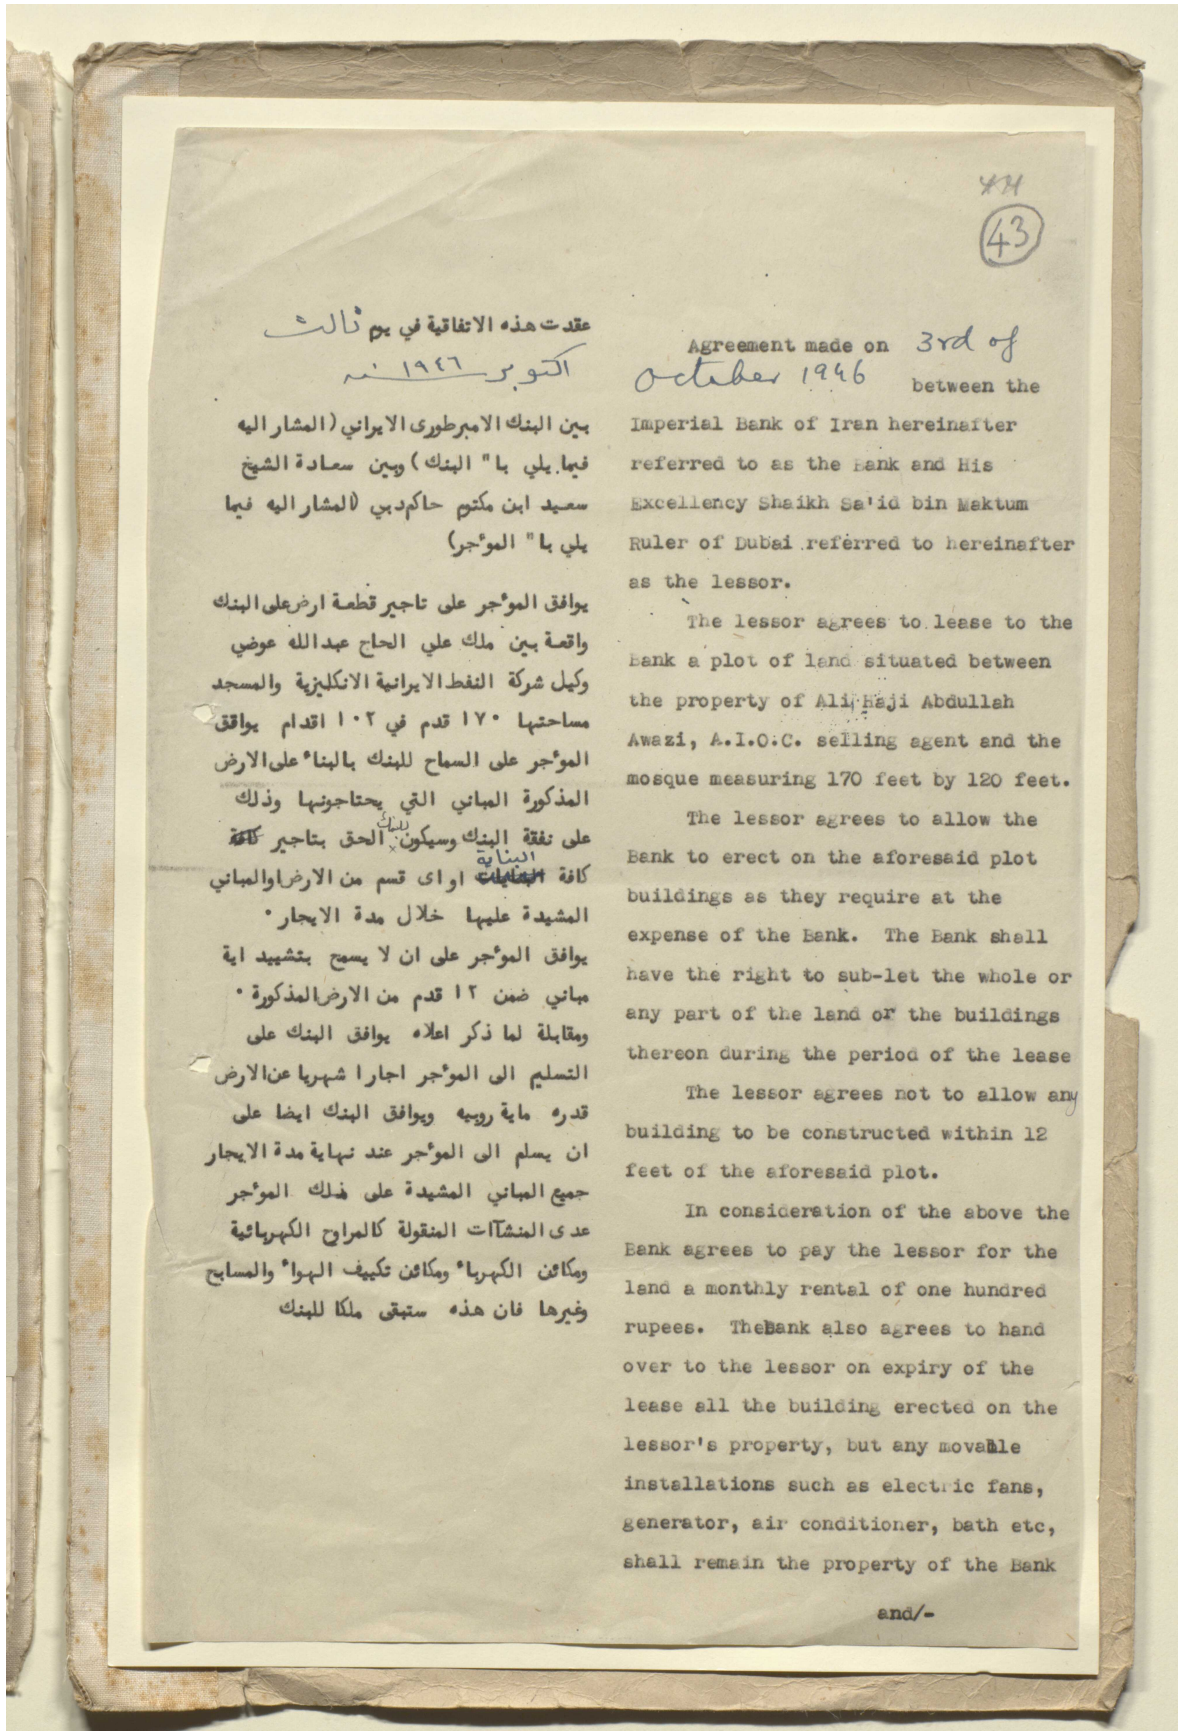 43
عقدت هذه الاتفاقية في يوم ثالث
اكتوبر سنه ١٩٤٦
بين البنك الامبرطورى الايراني (المشار اليه
فيما يلي با" البنك) وبين سعادة الشيخ
سعيد ابن مكتوم حاكم دبي (المشار اليه فيما
يلي با" الموٴجر)
يوافق الموٴجر على تاجير قطعة ارض على البنك
واقعة بين ملك علي الحاج عبدالله عوضي
وكيل شركة النفط الايرانية الانكليزية والمسجد
مساحتها ١٧٠ قدم في ١٠٢ اقدام يواقق
الموٴجر على السماح للبنك بالبناء على الارض
المذكورة المباني التي يحتاجونها وذلك
على نفقة البنك وسيكون للبنك الحق بتاجير كافة
كافة البناية او اى قسم من الارض اوالمباني
المشيدة عليها خلال مدة الايجار ٠
يوافق الموٴجر على ان لا يسمح بتشييد اية
مباني ضمن ١٢ قدم من الارض المذكورة ٠
ومقابلة لما ذكر اعلاه يوافق البنك على
التسليم الى الموٴجر اجارا شهريا عن الارض
قدره ماية روبيه ويوافق البنك ايضا على
ان يسلم الى الموٴجر عند نهاية مدة الايجار
جميع المباني المشيدة على ملك الموٴجر
عدى المنشآات المنقولة كالمراوح الكهربائية
ومكائن الكهرباء ومكائن تكييف الهواء والمسابح
وغيرها فان هذه ستبقى ملكا للبنك
Agreement made on 3rd of
October 1946 between the
Imperial Bank of Iran hereinafter
referred to as the Bank and His
Excellency Shaikh Sa'id bin Maktum
Ruler of Dubai referred to hereinafter
as the lessor.
The lessor agrees to lease to the
Bank a plot of land situated between
the property of Ali Haji Abdullah
Awazi, A.I.O.C. selling agent and the
mosque measuring 170 feet by 120 feet.
The lessor agrees to allow the
Bank to erect on the aforesaid plot
buildings as they require at the
expense of the Bank. The Bank shall
have the right to sub-let the whole or
any part of the land or the buildings
thereon during the period of the lease
The lessor agrees not to allow any
building to be constructed within 12
feet of the aforesaid plot.
In consideration of the above the
Bank agrees to pay the lessor for the
land a monthly rental of one hundred
rupees. The Bank also agrees to hand
over to the lessor on expiry of the
lease all the building erected on the
lessor's property, but any movable
installations such as electric fans,
generator, air conditioner, bath etc,
shall remain the property of the Bank
and/-